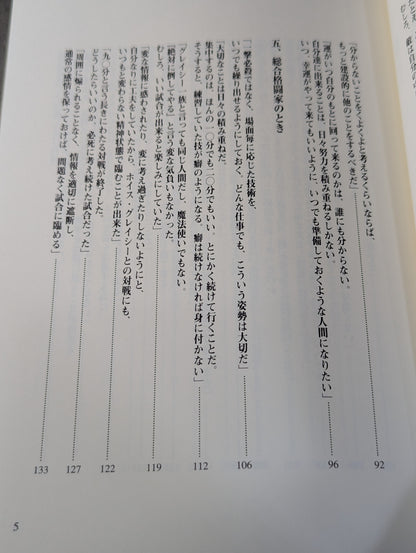 「分からないことをくよくよと考えるくらいならば、
もっと建設的に他のことをするべきだ」 92
「運がいつ自分のもとに回って来るのかは、誰にも分からない。
自分達に出来ることは、日々努力を積み重ねるしかない。
いつ、幸運がやって来てもいいように、いつでも準備しておくような人間になりたい」 96
五、総合格闘家のとき
「一撃必殺ではなく、場面毎に応じた技術を、
いつでも繰り出せるようにしておく、どんな仕事でも、こういう姿勢は大切だ」 106
「大切なことは日々の積み重ねだ。
集中するのは、ほんの一〇分でも二〇分でもいい、とにかく続けて行くことだ。
そうすると、練習していた技が癖のようになる。癖は続けなければ身に付かない」 112
「グレイシー一族と言っても同じ人間だし、魔法使いでもない。
『絶対に倒してやる』と言う変な気負いもなかった。
むしろ、いい試合が出来ると楽しみにしていた」 119
「変な情報に惑わされたり、変に考え過ぎたりしないようにと、
自分なりに工夫をしていたから、ホイス・グレイシーとの対戦にも、
いつもと変わらない精神状態で臨むことが出来た」 122
「九〇分と言う長きにわたる対戦が終了した。
どうしたらいいのか、必死に考え続けた試合だった」 127
「周囲に煽られることなく、情報を適切に遮断し、
通常の感情を保っておけば、問題なく試合に臨める」 133
5